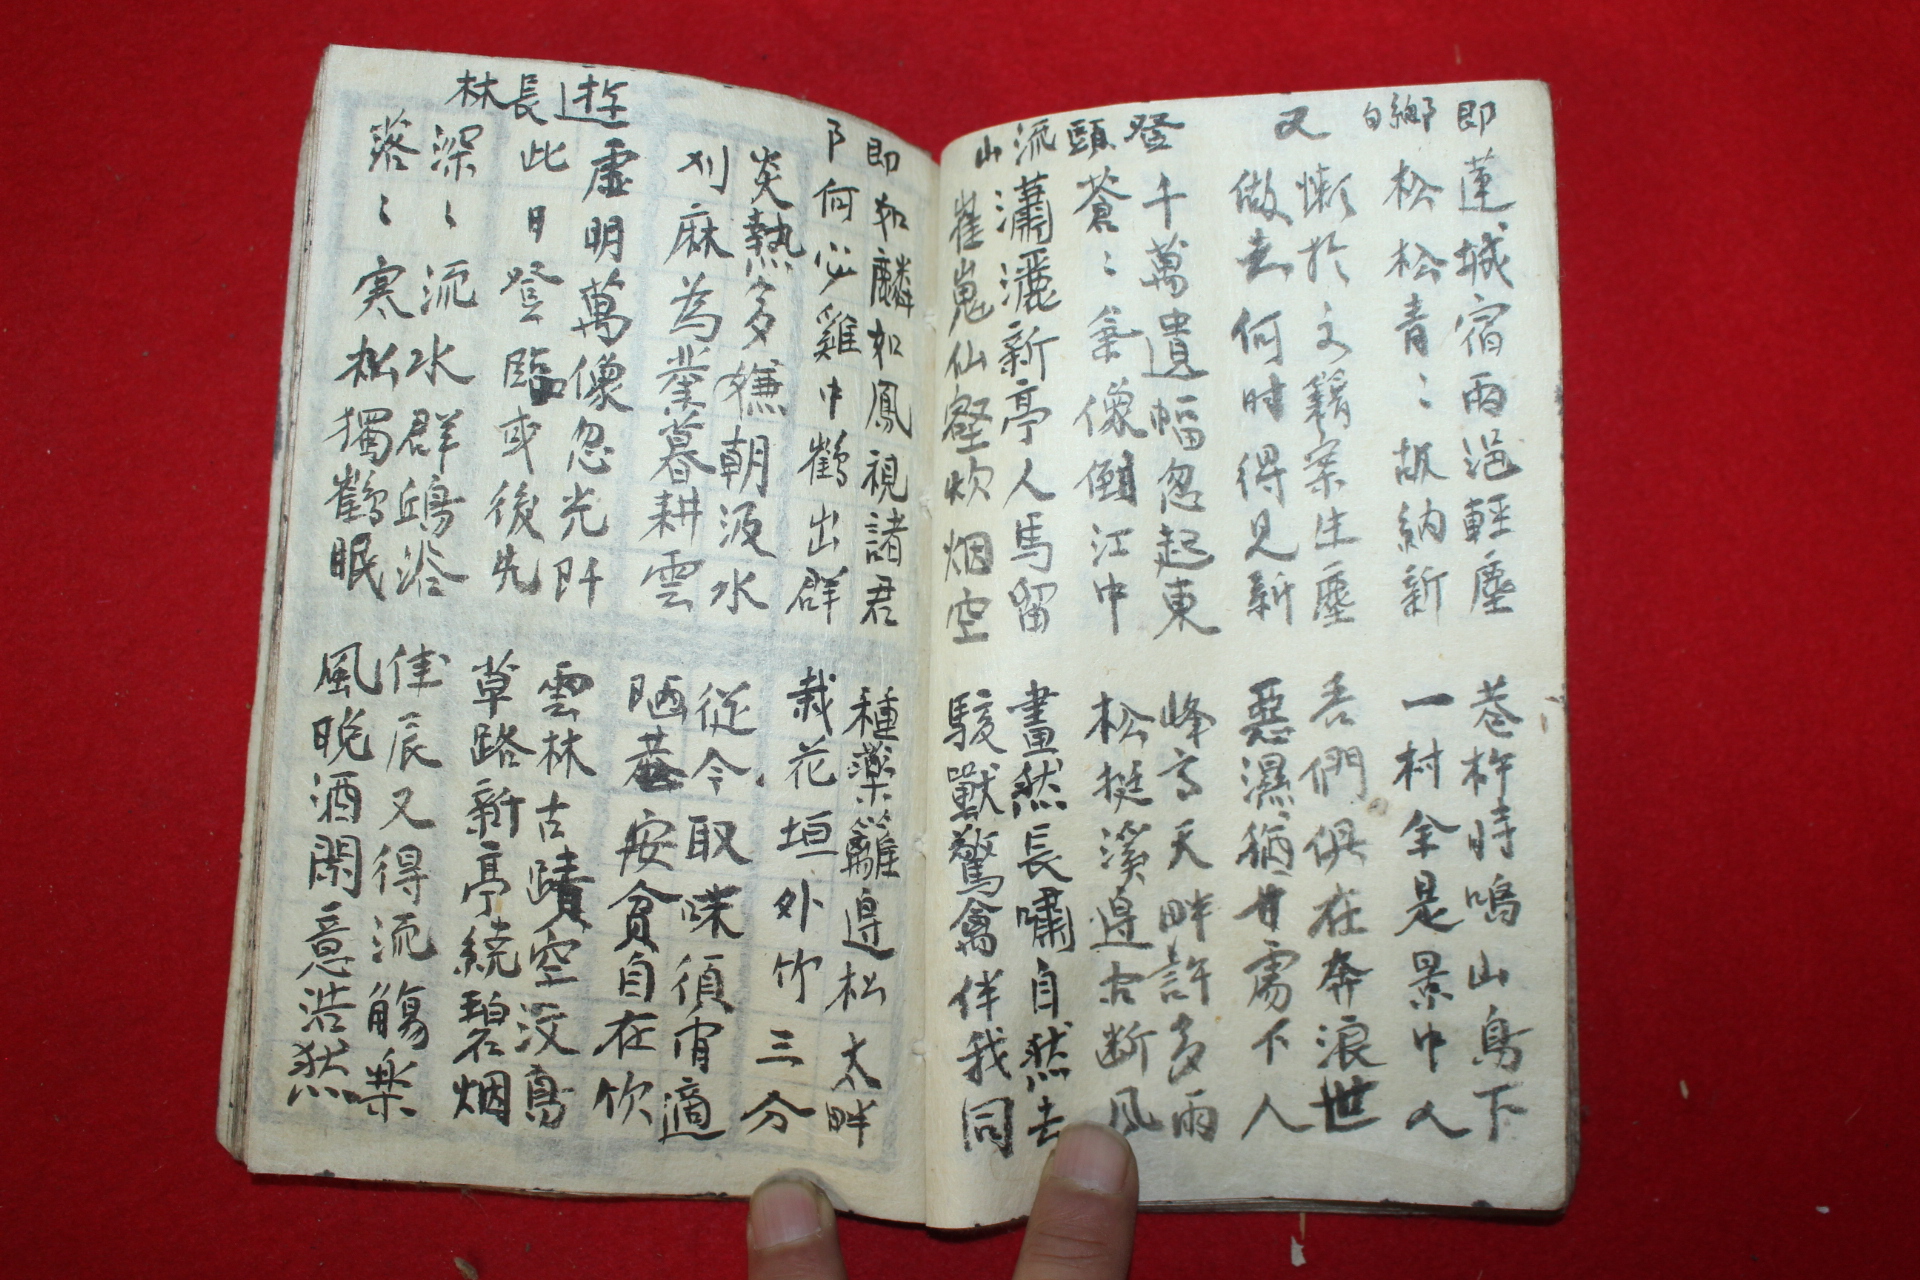 即 蓮城宿雨浥輕塵 巷杵時鳴山鳥下
松松松青ミ故納新 一村全是景中人
又 懶於文籍案生塵 吾們俱在奔浪世
做去何時得見新 惡濕猶甘處下人
登 千萬遺幅忽起東 峰高天畔許多雨
頭 蒼ミ氣像倒江中 松挺溪邊古断風
流 瀟灑新亭人馬留 畫然長嘯自然去
山 崔嵬仙壑炊烟空 駿獸驚禽伴我同
即 如麟如鳳視諸君 種藥籬邊松太畔
卩 何必雞中鶴出群 栽花垣外竹三分
炎熱多嫌朝汲水 從今取味須甯適
刈麻為業暮耕雲 陋巷安貧自在飲
遊 虛明萬像忽光阡 雲林古蹟空汶鳥
長 此日登臨或後先 草路新亭繞碧烟
林 深ミ流水群鴎浴 佳辰又得流觴楽
落ミ寒松獨鶴眠 風晩酒閑意浩然